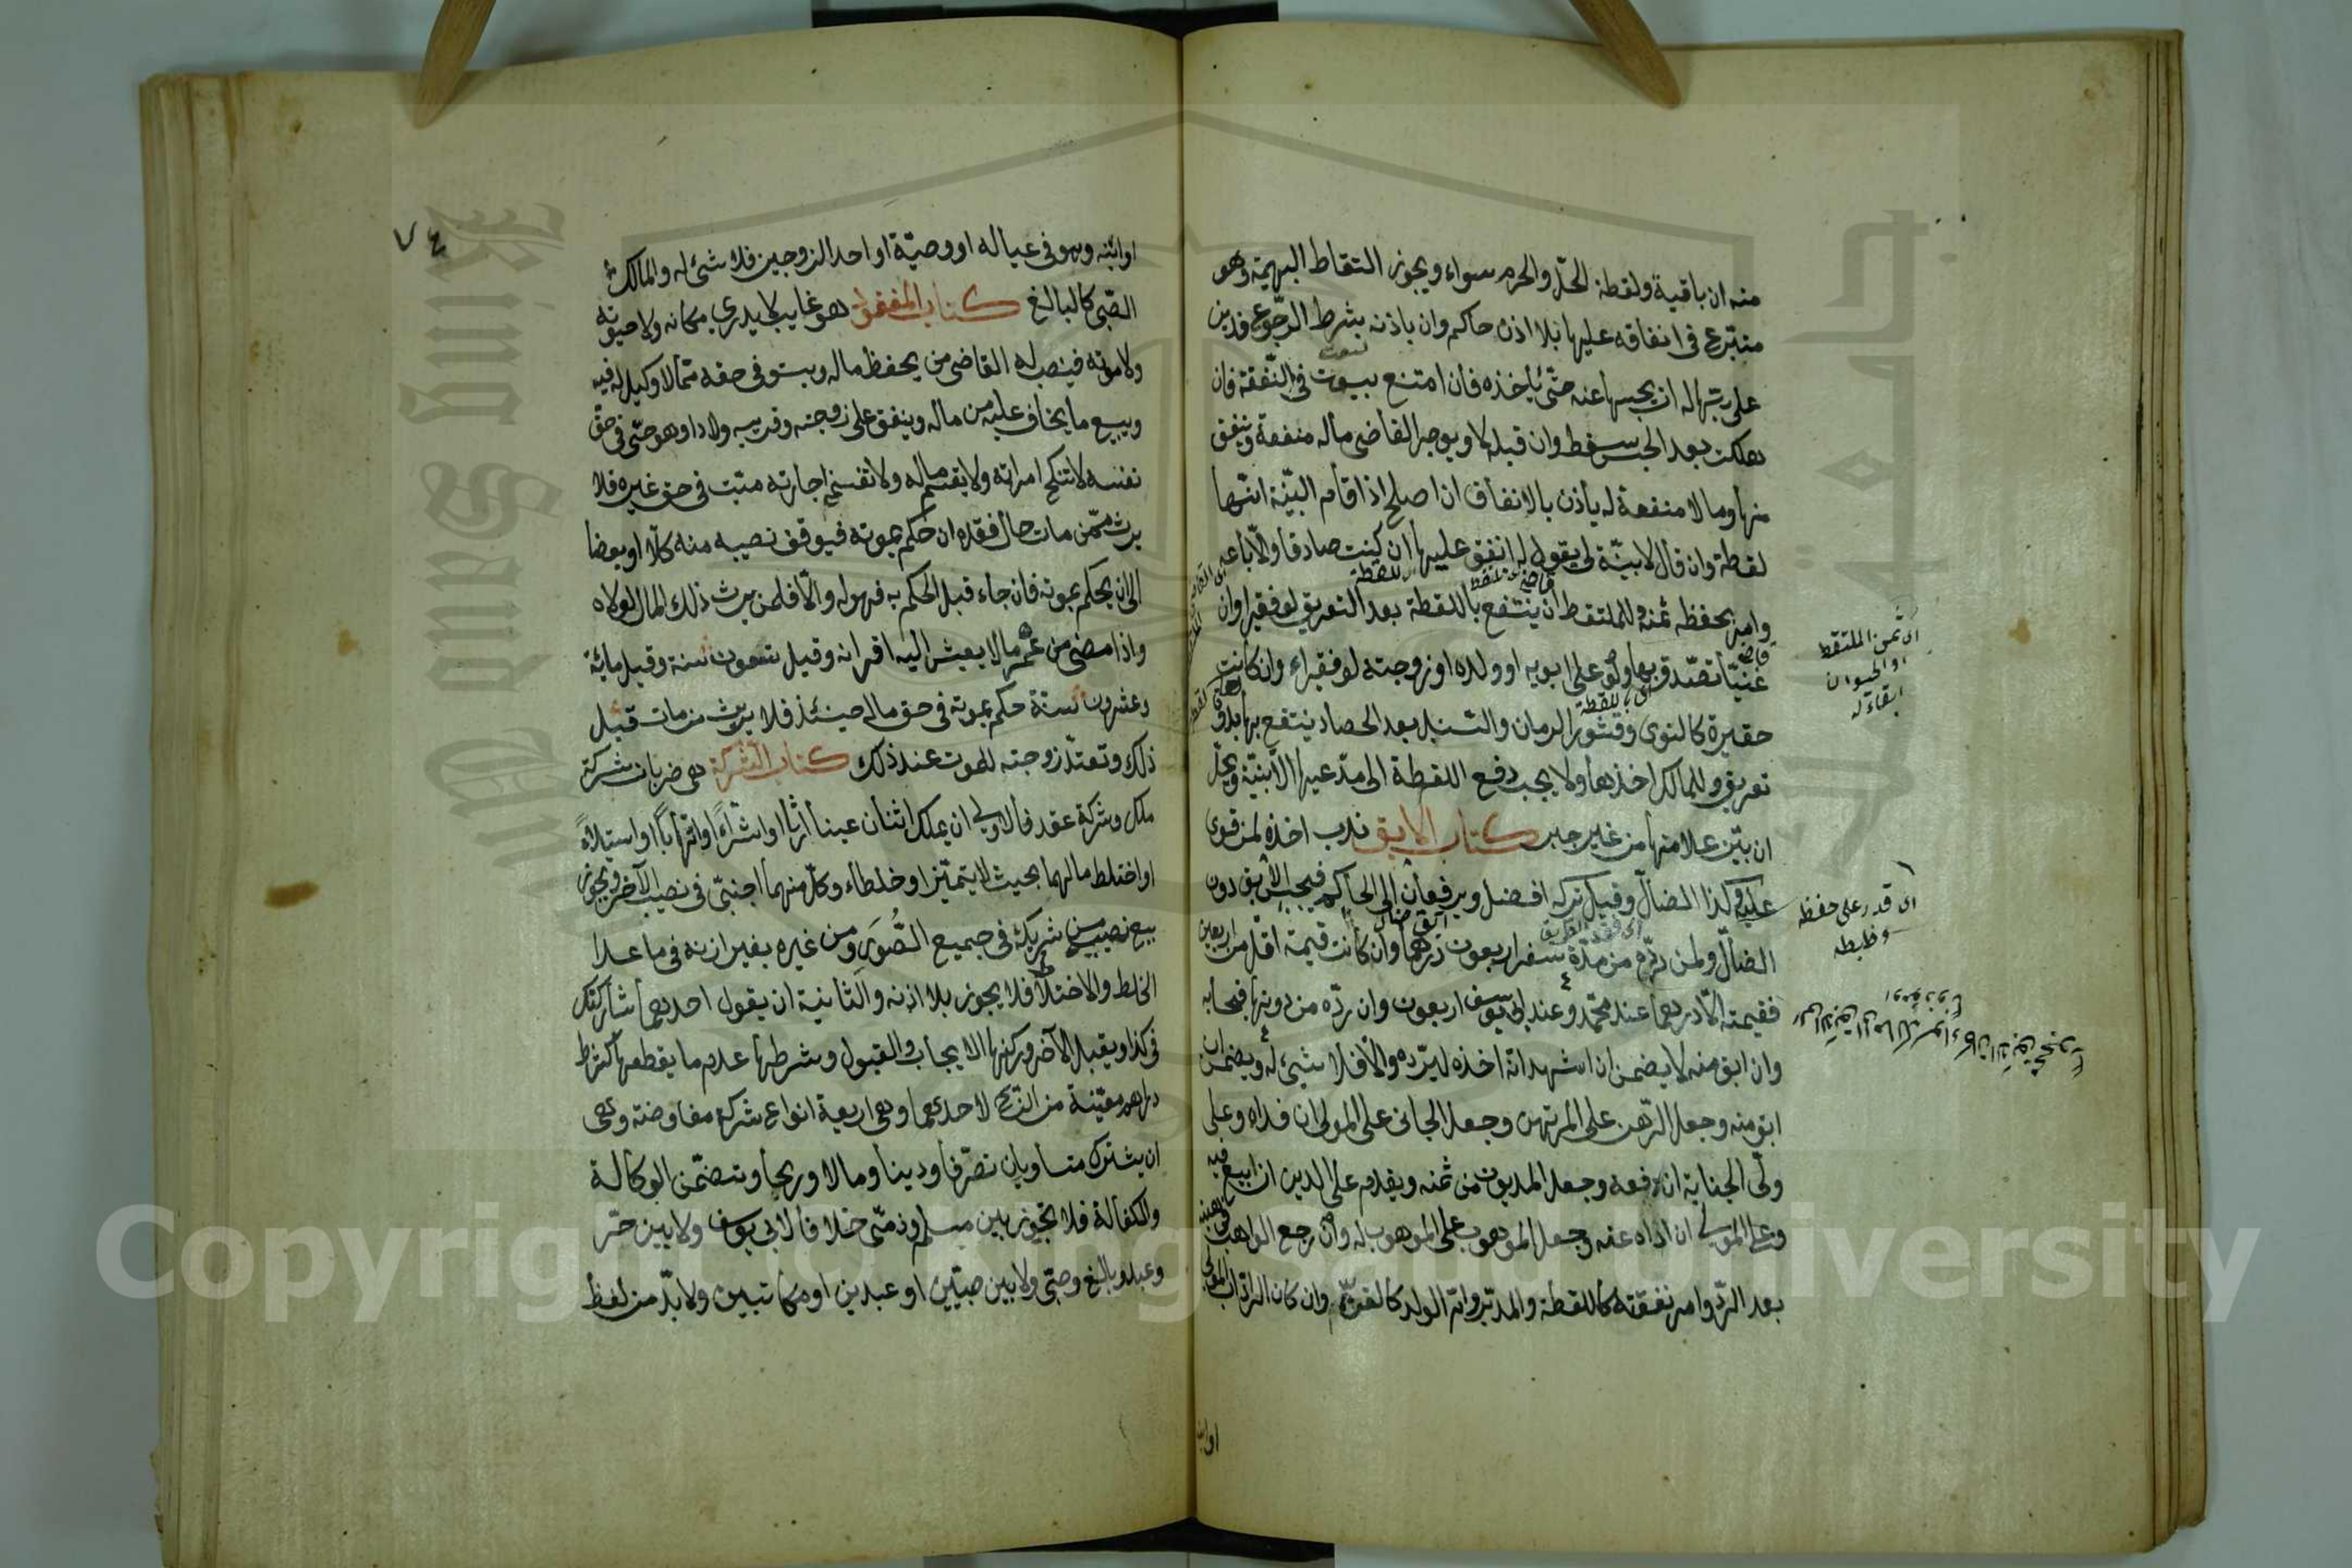 منه ان باقية ولقطة الحلّ والحرم سواء ويجوز التقاط البهيمة وهو
متبرّع فى انفاقه عليها بلا اذن حاكم وان باذنه بشرط الرّجوع فدين
على ربّها له ان يحبسها عنه حتّى يأخذه فان امتنع بيعت فى النّفقة فان
هلكت بعد الحبس سقط وان قبله لا ويوجر القاضى ماله منفعة وينفق
منها وما لا منفعة له يأذن بالانفاق ان اصلح اذا اقام البيّنة انّها
لقطة وان قال لا بيّنة لى يقول له انفق عليها ان كنت صادقا والّا باعه
وامر بحفظ ثمنه وللملتقط ان ينتفع باللقطة بعد التعريف لو فقيرا وان
غنيّا تصدّق بها ولو على ابويه او ولده او زوجته لو فقراء وان كانت
حقيرة كالنوى وقشور الرمان والسنبل بعد الحصاد ينتفع بها بدون
تعريف وللمالك اخذها ولا يجب دفع اللقطة الى مدّعيها الّا ببيّنة ويحلّ
ان بيّن علامتها من غير جبر كتاب الابق ندب اخذه لمن قوى
عليه وكذا الضالّ وقيل تركه افضل ويرفعان الى الحاكم فيحبس الآبق دون
الضالّ ولمن ردّه من مدّة سفر اربعون درهما وان كانت قيمته اقلّ من اربعين
فقيمته الّا درهما عند محمّد وعند ابى يوسف اربعون وان ردّه من دونها فبحسابه
وان ابق منه لا يضمن ان اشهد انّه اخذه ليردّه والّا فلا شيئ له ويضمن ان
ابق منه وجعل الرّهن على المرتهن وجعل الجانى على المولى ان فداه وعلى
ولىّ الجناية ان دفعه وجعل المديون من ثمنه ويقدم على الدين ان بيع فيه
وعلى المولى ان اداه عنه وجعل الموهوب على الموهوب له وان رجع الواهب فى هبته
بعد الردّ وامر نفقته كاللقطة والمدبّر وامّ الولد كالقنّ وان كان الرّادّ اب المولى
اى ثمن الملتقط
او الحيوان
ابقاء له
اى قدر على حفظه
وضبطه
او ابنه وهو فى عياله او وصيّه او احد الزوجين فلا شئ له والمالك
الصّبى كالبالغ كتاب المفقود هو غايب لا يدرى مكانه ولا حيوته
ولا موته فينصب له القاضى من يحفظ ماله ويستوفى حقه ممّا لا وكيل له فيه
ويبيع ما يخاف عليه من ماله وينفق على زوجته وقريبه ولادا وهو حىّ فى حقّ
نفسه لا تنكح امراته ولا يقسم ماله ولا تفسخ اجارته ميّت فى حق غيره فلا
يرث ممّن مات حال فقده ان حكم بموته فيوقف نصيبه منه كلّا او بعضا
الى ان يحكم بموته فان جاء قبل الحكم به فهو له والّا فلمن يرث ذلك المال لولاه
واذا مضى من عمره ما لا يعيش اليه اقرانه وقيل تسعون سنة وقيل مائة
وعشرون سنة حكم بموته فى حق ماله حينئذ فلا يرثه من مات قبل
ذلك وتعتدّ زوجته للموت عند ذلك كتاب الشركة هى ضربان شركة
ملك وشركة عقد فالاولى ان يملك اثنان عينا ارثا او شراءً او اتّهابًا او استيلاءً
او اختلط مالهما بحيث لا يتميّز او خلطاه وكلّ منهما اجنبىّ فى نصيب الآخر ويجوز
بيع نصيبه من شريكه فى جميع الصُّوَر ومن غيره بغير اذنه فى ما عدا
الخلط والاختلاط فلا يجوز بلا اذنه والثانية ان يقول احدهما شاركتك
فى كذا ويقبل الآخر وركنها الايجاب والقبول وشرطها عدم ما يقطعها كشرط
دراهم معيّنة من الرّبح لاحدهما وهى اربعة انواع شركة مفاوضة وهى
ان يشترك متساويان تصرّفا ودينا ومالا وربحا وتتضمّن الوكالة
والكفالة فلا تجوز بين مسلم وذمّى خلافا لابى يوسف ولا بين حرّ
وعبد وبالغ وصبىّ ولا بين صبيّين او عبدين او مكاتبين ولا بدّ من لفظ
٧٤
Copyright © King Saud University
King Saud University